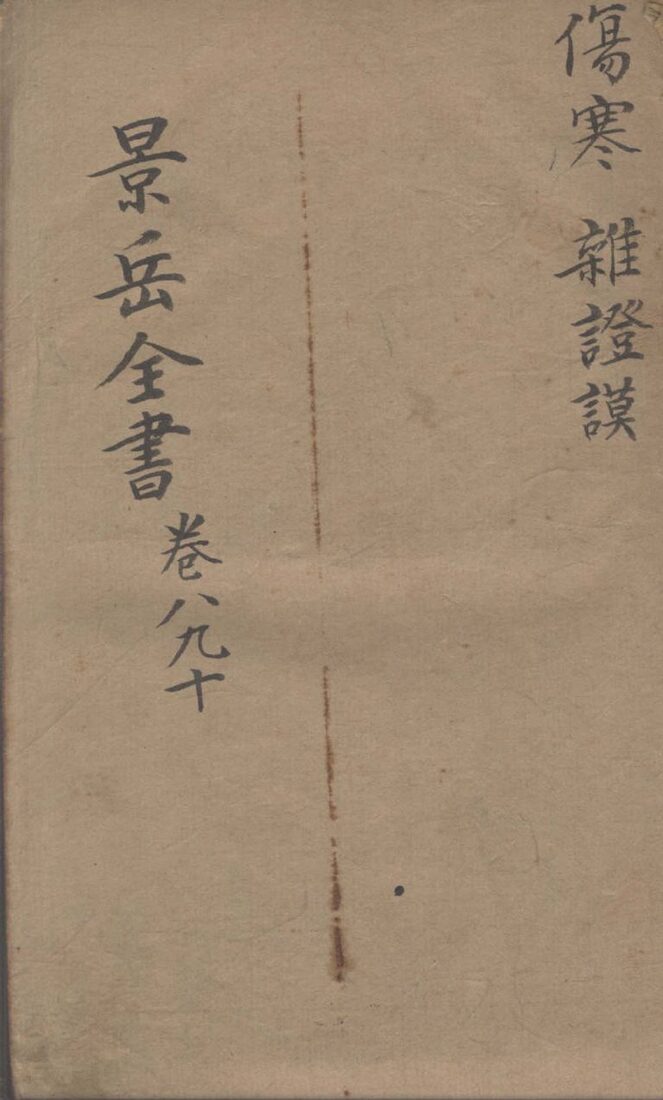 傷寒 雜證謨
景岳全書 卷八九十